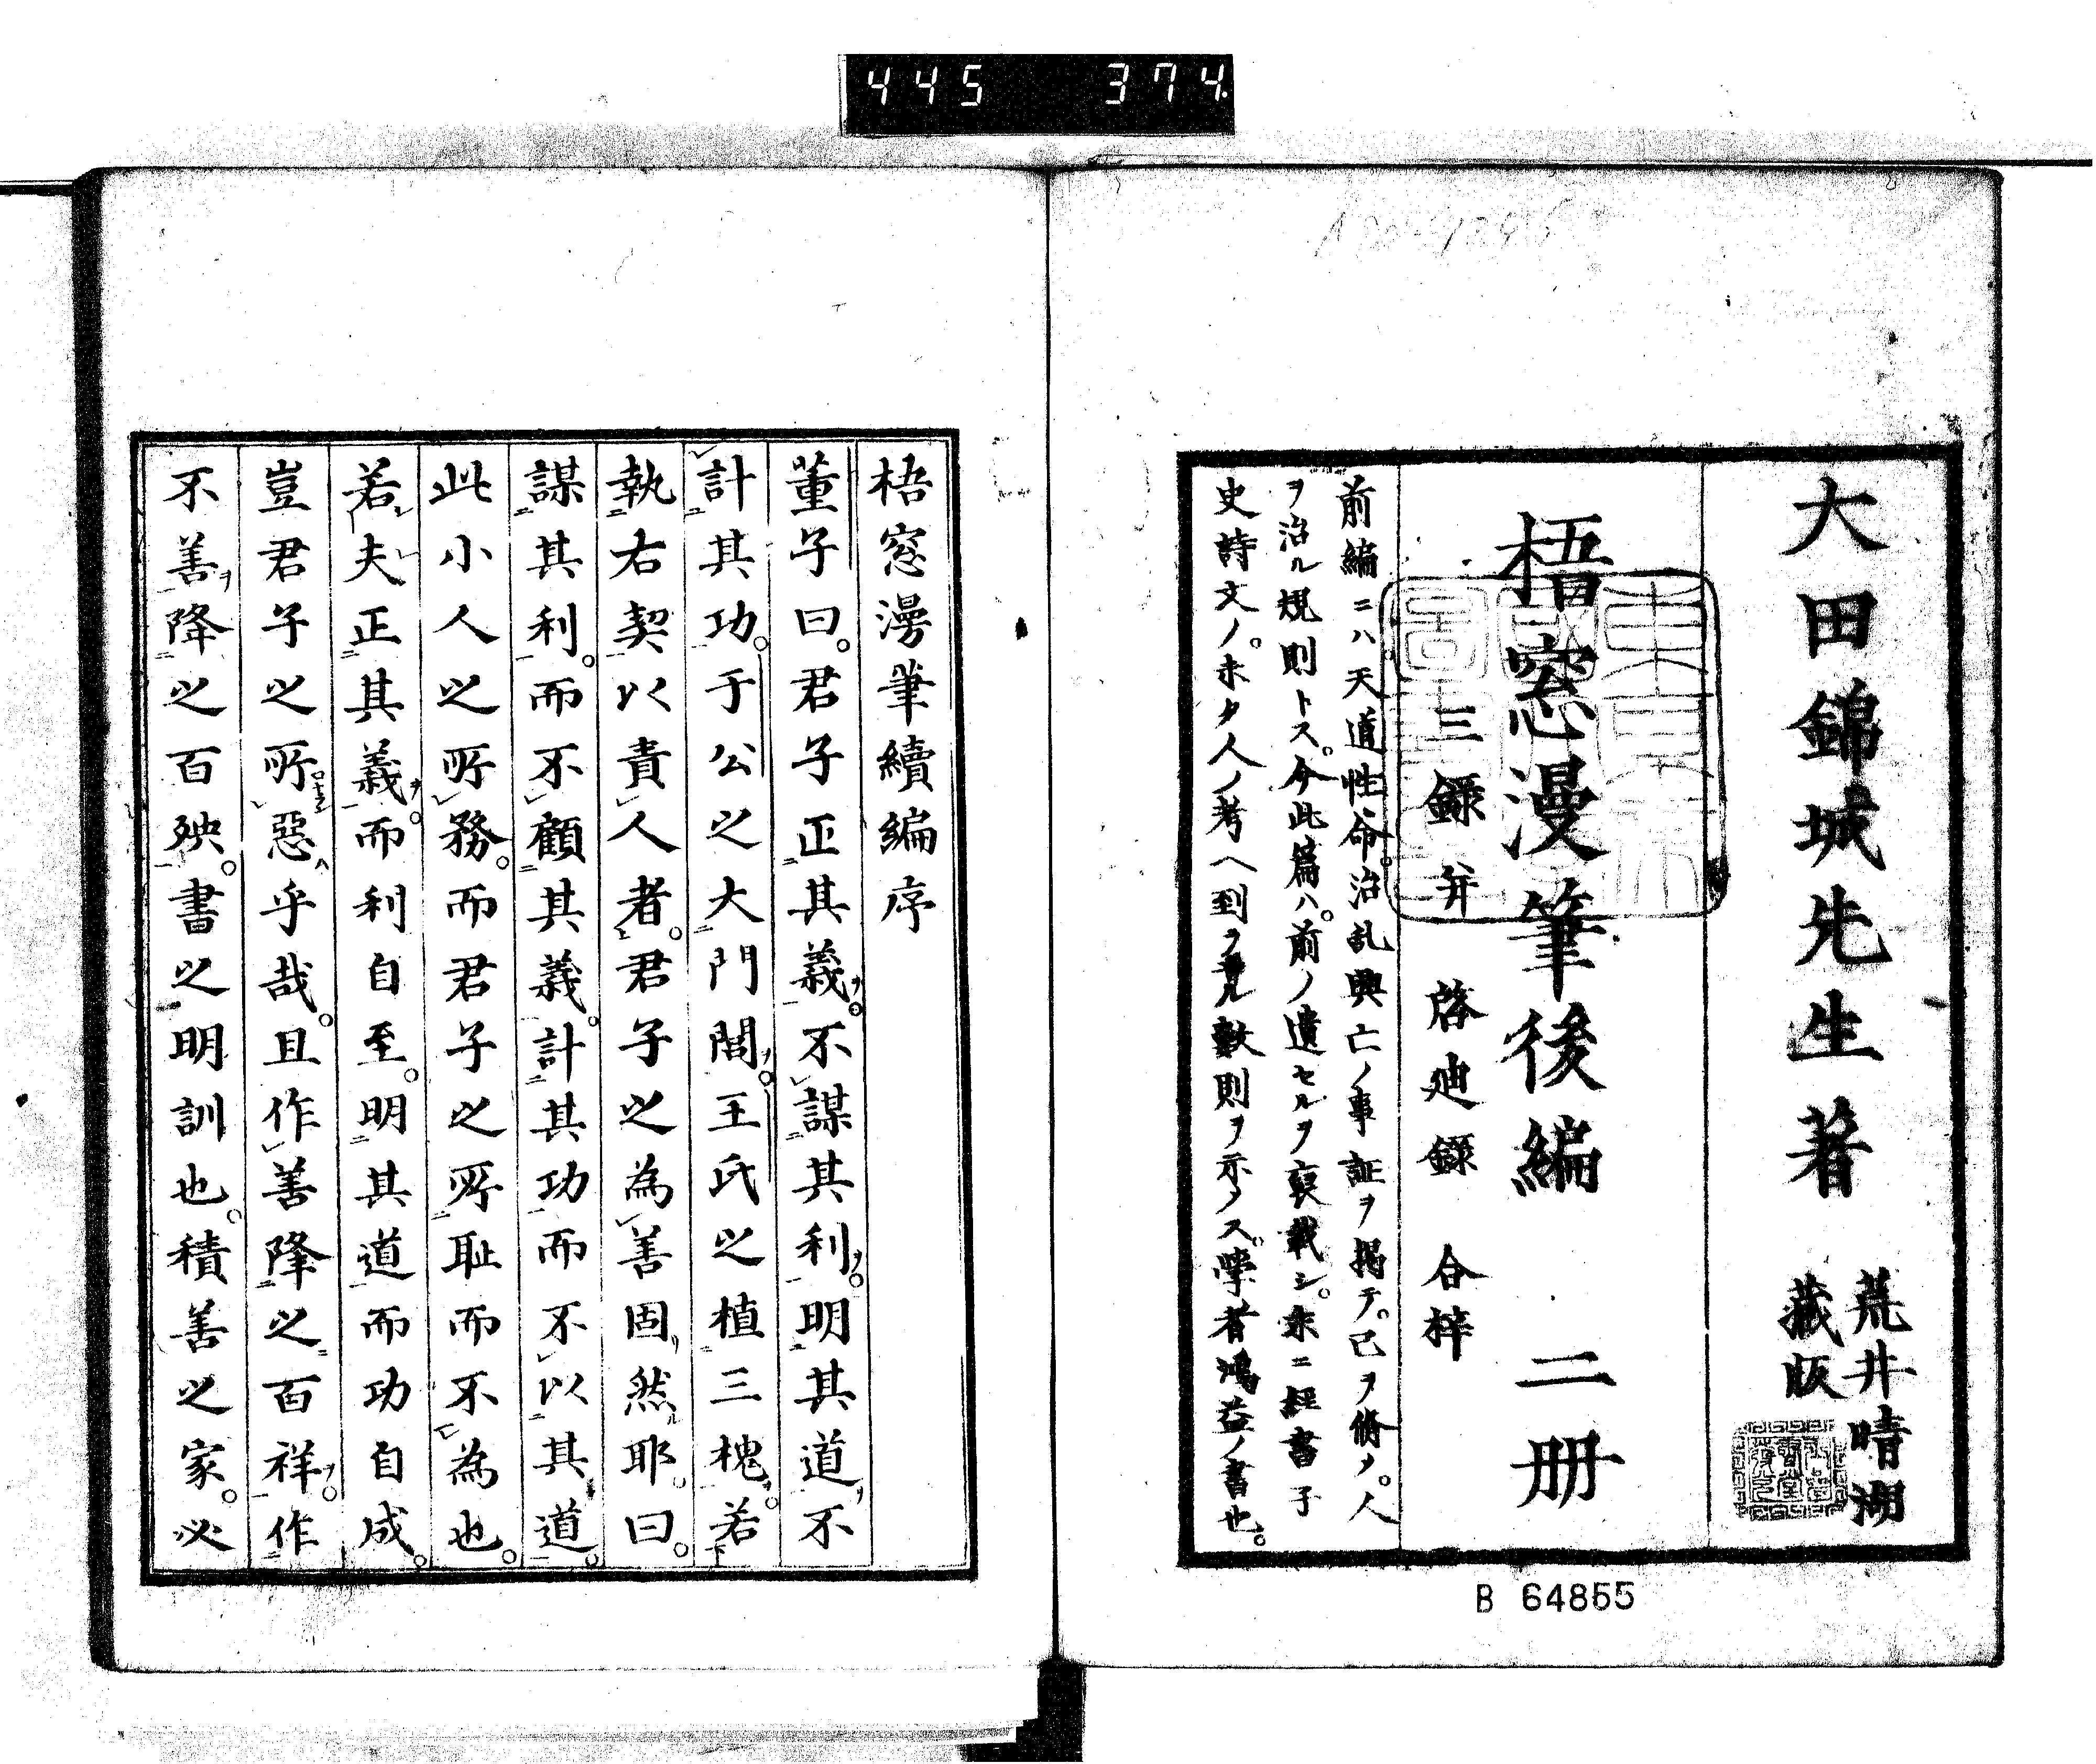 445 374
大田錦城先生著
荒井晴湖
藏版
梧窓漫筆後編 二册
三録 并 啓廸録 合梓
前編ニハ天道性命。治乱興亡ノ事証ヲ掲テ。己ヲ脩メ。人
ヲ治ル規則トス。今此篇ハ。前ノ遺セルヲ裒載シ。末ニ經書子
史詩文ノ。未タ人ノ考ヘ到ラヌ數則ヲ示メス。學者鴻益ノ書也。
B 64855
梧窓漫筆續編序
董子曰。君子正其義。不謀其利。明其道不
計其功。于公之大門閭。王氏之植三槐。若
執右契以責人者。君子之為善固然耶。曰。
謀其利。而不顧其義。計其功而不以其道。
此小人之所務。而君子之所恥而不為也。
若夫正其義。而利自至。明其道而功自成。
豈君子之所惡乎哉。且作善降之百祥。作
不善降之百殃。書之明訓也。積善之家。必